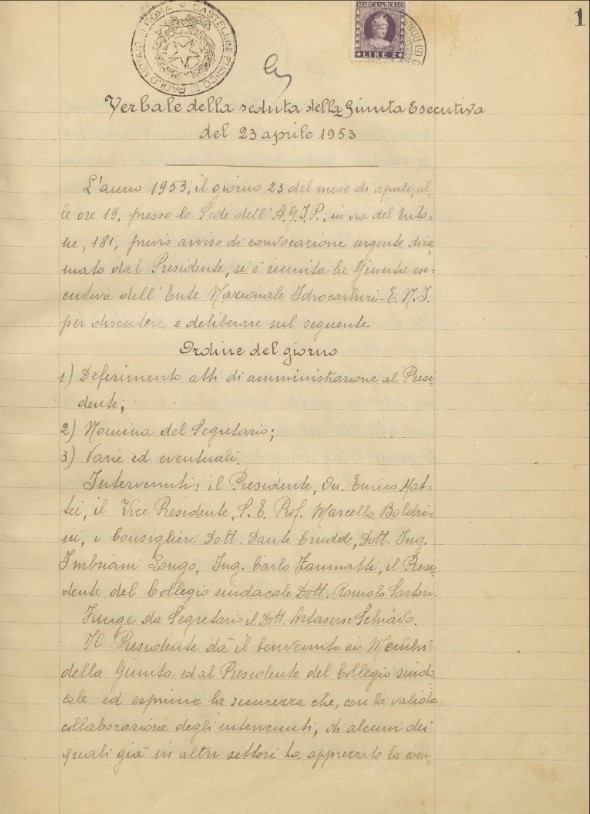 1
MARCA DA BOLLO
LIRE 2
Verbale della seduta della Giunta Esecutiva
del 23 aprile 1953
L'anno 1953, il giorno 23 del mese di aprile, al
le ore 19, presso la Sede dell'A.G.I.P., in via del Trito-
ne, 181, previo avviso di convocazione urgente dira
mato dal Presidente, si è riunita la Giunta ese-
cutiva dell'Ente Nazionale Idrocarburi - E.N.I.
per discutere e deliberare sul seguente
Ordine del giorno
1) Deferimento atti di amministrazione al Presi
dente;
2) Nomina del Segretario;
3) Varie ed eventuali.
Intervenuti: il Presidente, On. Enrico Mat-
tei, il Vice Presidente, S.E. Prof. Marcello Boldri-
ni, i Consiglieri Dott. Dante, Dott. Ing.
Imbriani Longo, Ing. Carlo Zanmatti, il Presi
dente del Collegio sindacale Dott. Romolo Sartori.
Funge da Segretario il Dott. Artaserse Schiavo.
Il Presidente dà il benvenuto ai Membri
della Giunta ed al Presidente del Collegio sinda
cale ed esprime la sicurezza che, con la valida
collaborazione degli intervenuti, di alcuni dei
quali già in altri settori ha apprezzato la com-